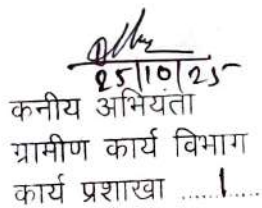 25/10/25
कनीय अभियंता
ग्रामीण कार्य विभाग
कार्य प्रशाखा ....1....